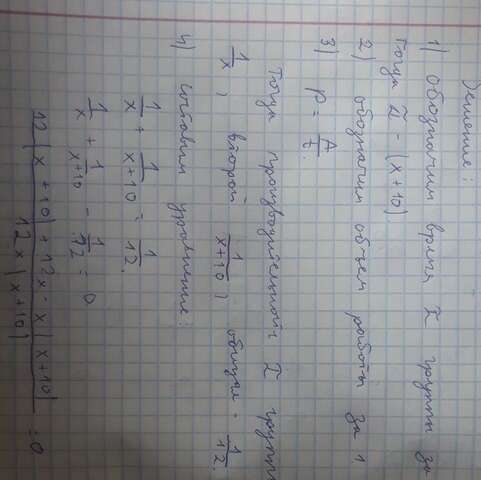 Решение:
1) Обозначим время I группы за
Тогда II - (x+10)
2) обозначим объем работы за 1
3) P = A/t.
Тогда производительность I группы
1/x, второй 1/(x+10), общая - 1/12.
4) Составим уравнение:
1/x + 1/(x+10) = 1/12.
1/x + 1/(x+10) - 1/12 = 0
(12(x+10) + 12x - x(x+10))/(12x(x+10)) = 0